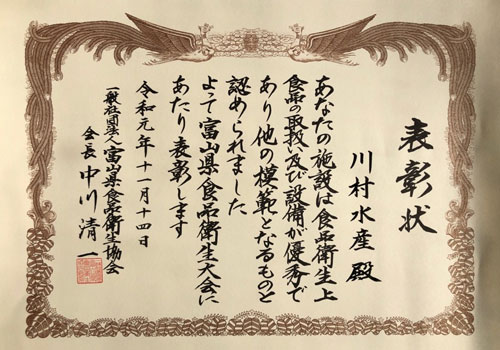 表彰状
川村水産 殿
あなたの施設は食品衛生上
食品の取扱い及び設備が優秀で
あり他の模範となるものと
認められました
よって富山県食品衛生大会に
あたり表彰します
令和元年十一月十四日
一般社団法人富山県食品衛生協会
会長 中川清一